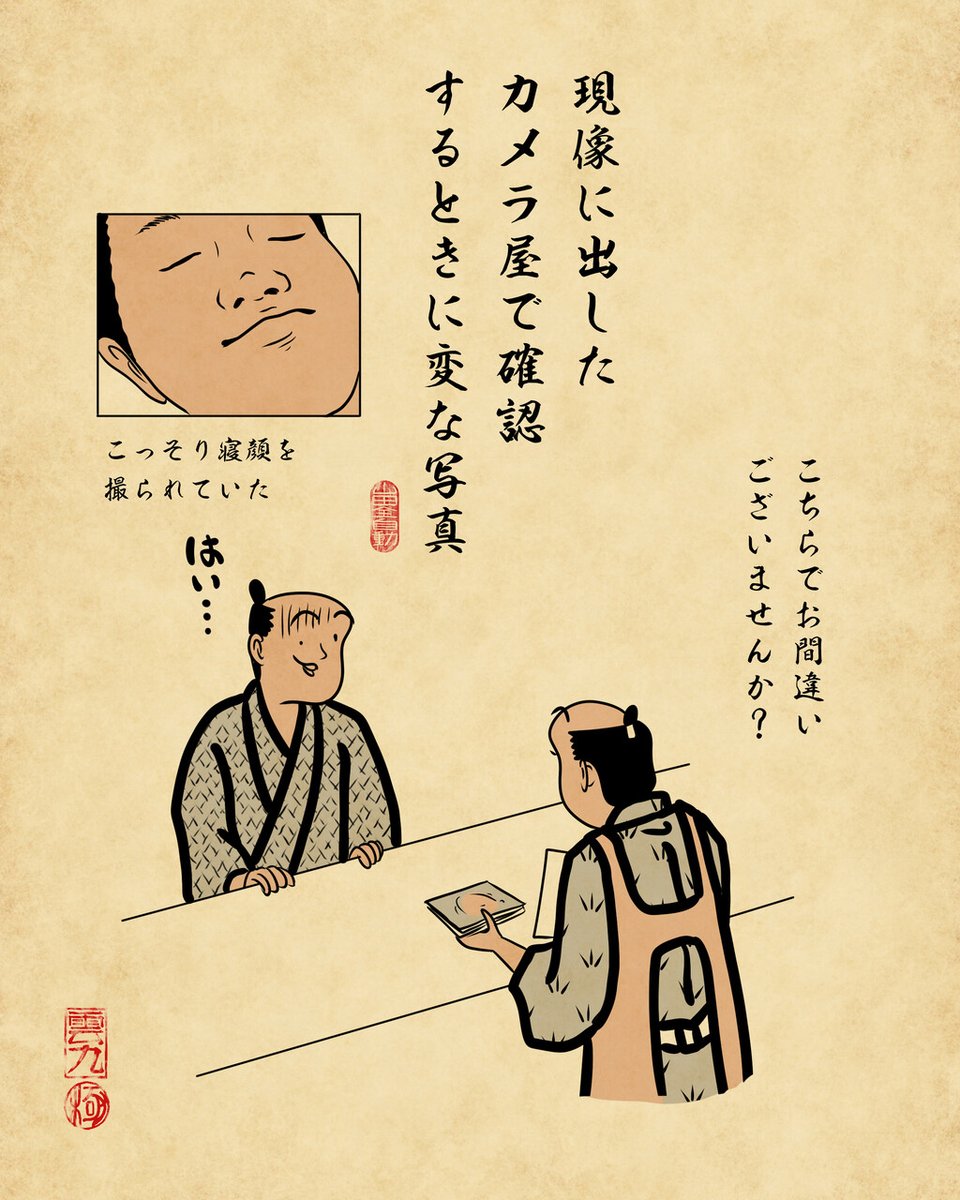 現像に出した
カメラ屋で確認
するときに変な写真
こちらでお間違い
ございませんか？
こっそり寝顔を
撮られていた
はい…